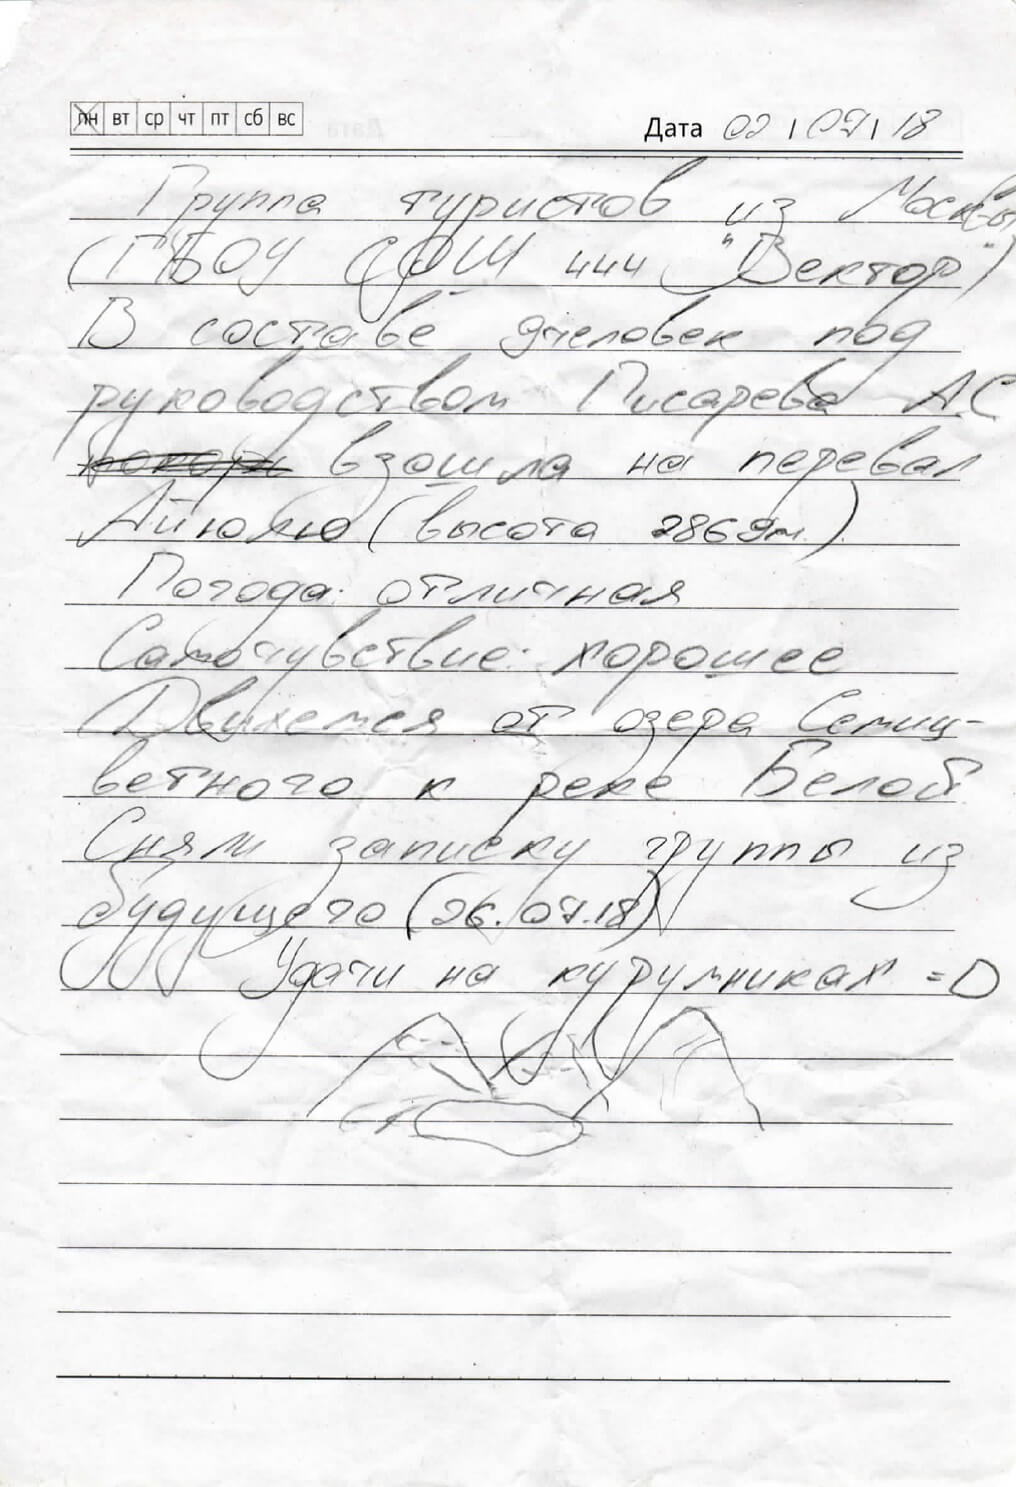 пн вт ср чт пт сб вс
Дата 02 07 18
Группа туристов из Москвы
(ГБОУ СОШ 444 "Вектор")
В составе 9 человек под
руководством Писарева А.С
взошла на перевал
Айюлю (высота 2869м.).
Погода: отличная
Самочувствие: хорошее
Движемся от озера Семиц-
ветного к реке Белой
Сняли записку группы из
будущего (26.07.18)
Удачи на курумниках =D